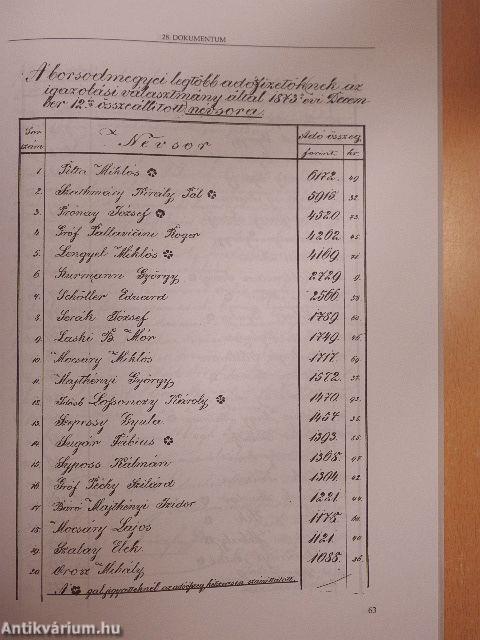 28. DOKUMENTUM
A borsodmegyei legtöbb adófizetőknek az
igazolási választmány által 1873 évi Decem-
ber 12én összeállitott névsora.
Sor szám Névsor Adó összeg
forint. kr.
1. Miklós 6172. 49.
2. Szathmáry Király Pál 5915. 32.
3. Prónay József 4320 73.
4. Gróf Pallavicini Roger 4262 45.
5. Lengyel Miklós 4169
6 Sturmann György 2729 9.
7. Schöller Eduard 2566 58
8 József 1759
9. Laski B. Mór 1749.
10. Mocsáry Miklós 1717. 69
11. Majthényi György 1572.
12. Idősb Losonczy Károly 1470 93.
13. Szepessy Gyula 1457 35.
14. Fábius 1393. 55.
15. Kálmán 1368.
16. Gróf Péchy Szilárd 1304 42
17 Báró Majthényi Izidor 1221. 44
18. Mocsáry Lajos 1175.
19. Szalay Elek. 1121.
20 Orosz Mihály 1088. 36.
63
Antikvárium.hu